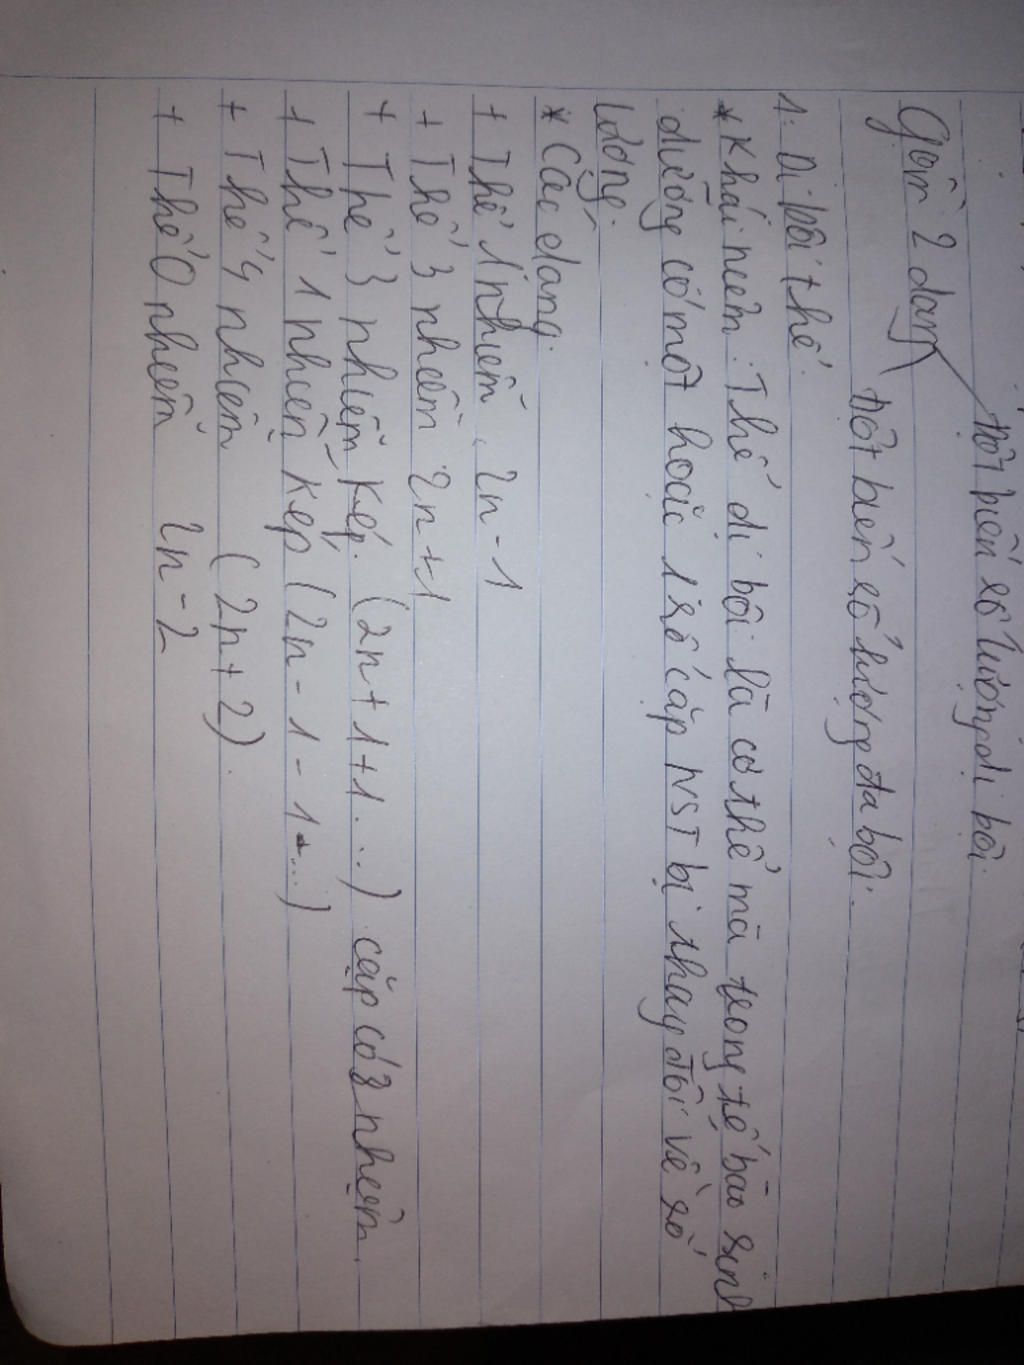 Đột biến số lượng dị bội.
Gồm 2 dạng
Đột biến số lượng đa bội.
1. Dị bội thể.
* Khái niệm: Thể dị bội là cơ thể mà trong tế bào sinh
dưỡng có một hoặc 1 số cặp NST bị thay đổi về số
lượng.
* Các dạng.
+ Thể 1 nhiễm 2n-1
+ Thể 3 nhiễm 2n+1
+ Thể 3 nhiễm kép. (2n+1+1...) cặp có 3 nhiễm.
+ Thể 1 nhiễm kép (2n-1-1-...)
+ Thể 4 nhiễm (2n+2).
+ Thể 0 nhiễm 2n-2